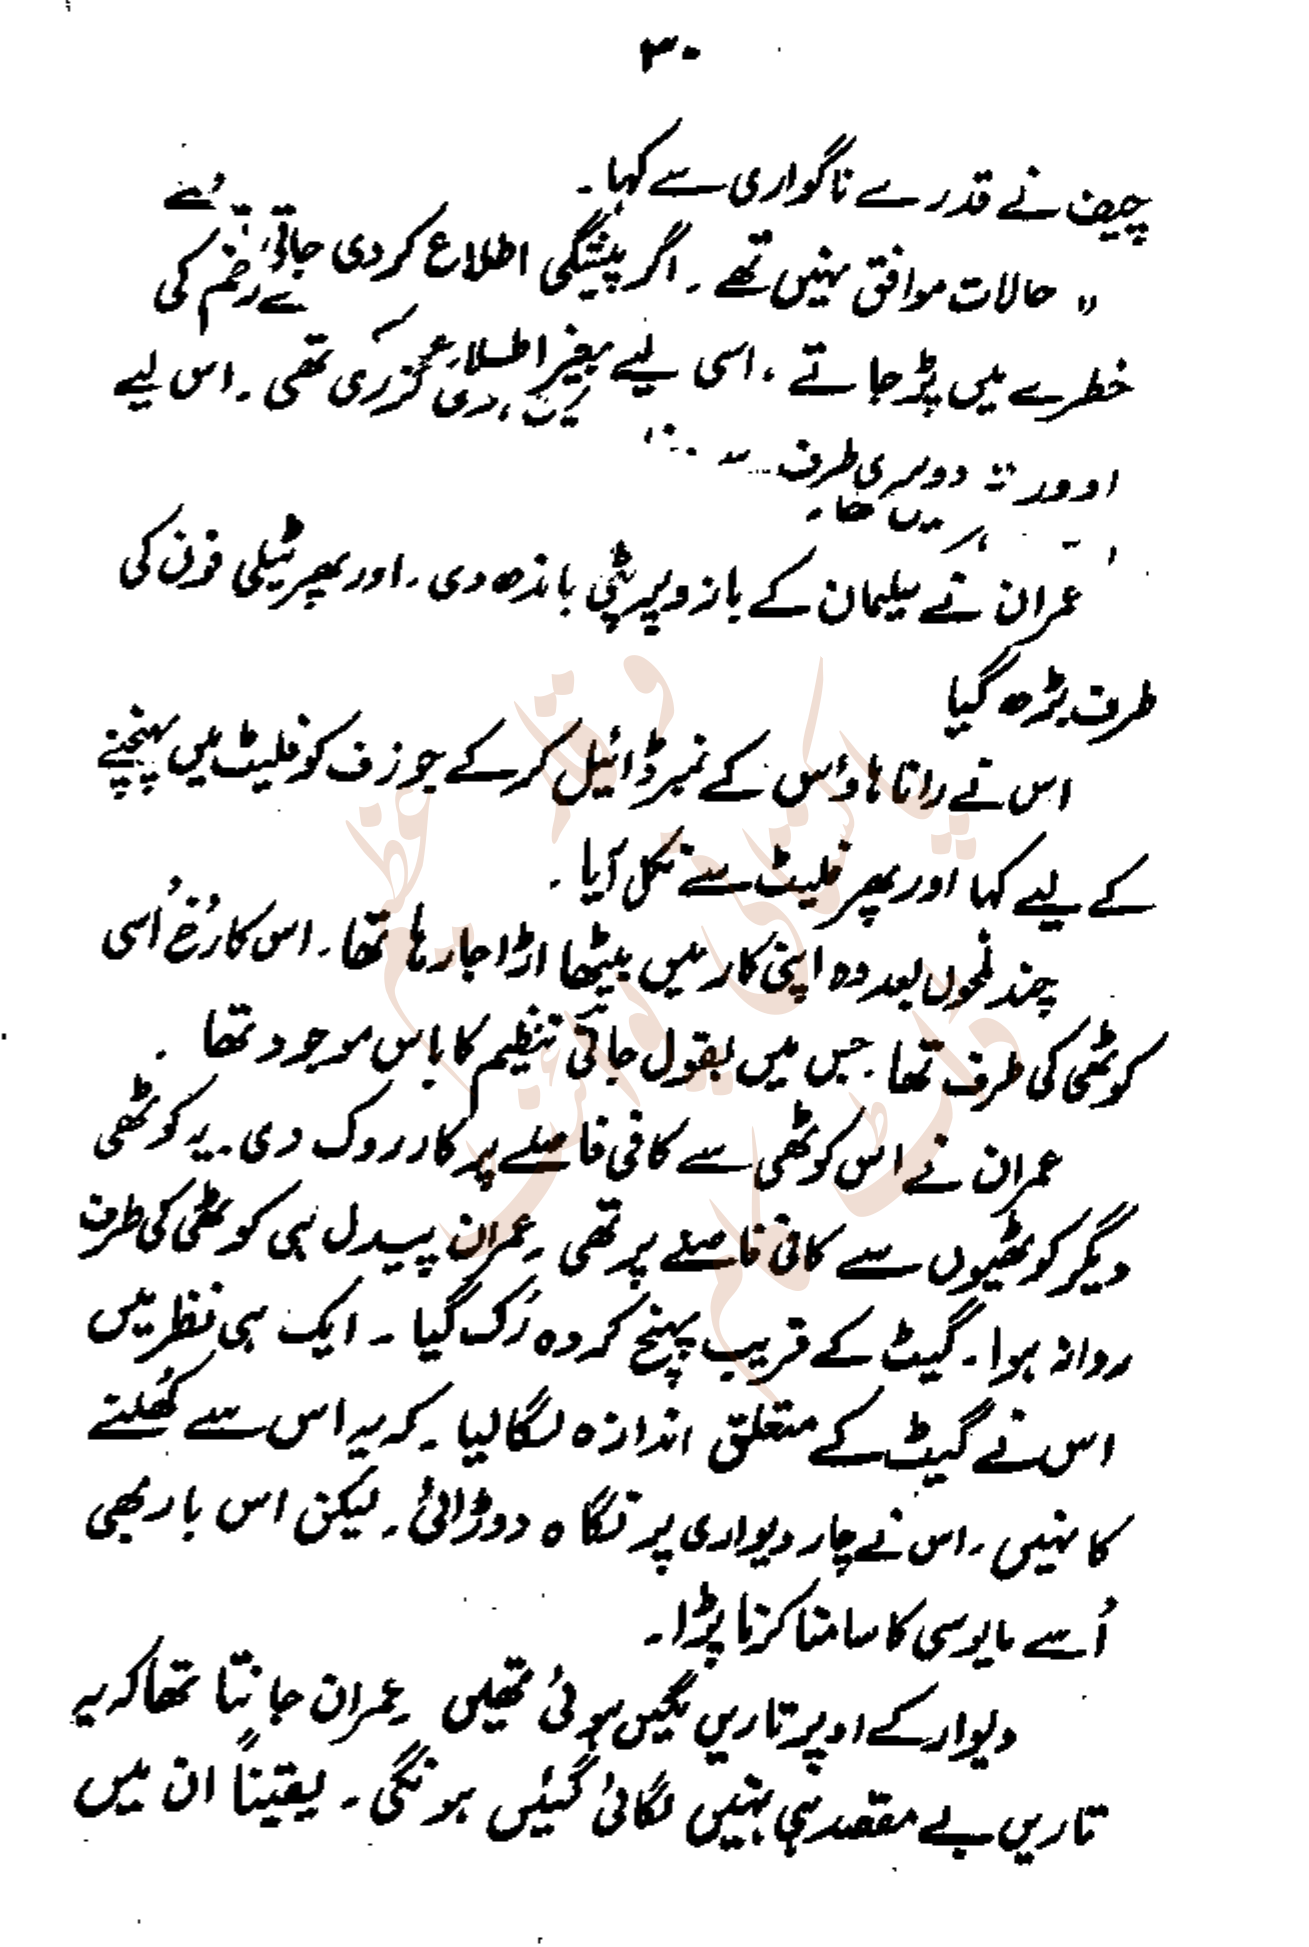 ۳۰
چیف نے قدرے ناگواری سے کہا۔
" حالات موافق نہیں تھے ۔ اگر پیشگی اطلاع کر دی جاتی
خطرے میں پڑ جاتے ، اسی لیے بغیر اطلاع
سے زخم کی
گزری تھی ۔ اس لیے
دوسری طرف
عمران نے سلیمان کے بازو پر پٹی باندھ دی ۔ اور پھر ٹیلی فون کی
طرف بڑھ گیا
اس نے رانا ہاؤس کے نمبر ڈائیل کر کے جوزف کو فلیٹ میں پہنچنے
کے لیے کہا اور پھر فلیٹ سے نکل آیا ۔
چند لمحوں بعد وہ اپنی کار میں بیٹھا اڑا جا رہا تھا ۔ اس کا رُخ اُسی
کوٹھی کی طرف تھا ۔ جس میں بقول جاکی تنظیم کا باس موجود تھا ۔
عمران نے اس کوٹھی سے کافی فاصلے پر کار روک دی ۔ یہ کوٹھی
دیگر کوٹھیوں سے کافی فاصلے پر تھی ۔ عمران پیدل ہی کوٹھی کی طرف
روانہ ہوا ۔ گیٹ کے قریب پہنچ کر وہ رُک گیا ۔ ایک ہی نظر میں
اس نے گیٹ کے متعلق اندازہ لگا لیا ۔ کہ یہ اس سے کھُلنے
کا نہیں ۔ اس نے چار دیواری پر نگاہ دوڑائی ۔ لیکن اس بار بھی
اُسے مایوسی کا سامنا کرنا پڑا ۔
دیوار کے اوپر تاریں لگیں ہوئی تھیں ۔ عمران جانتا تھا کہ یہ
تاریں بے مقصد ہی نہیں لگائی گئیں ہونگی ۔ یقیناً ان میں